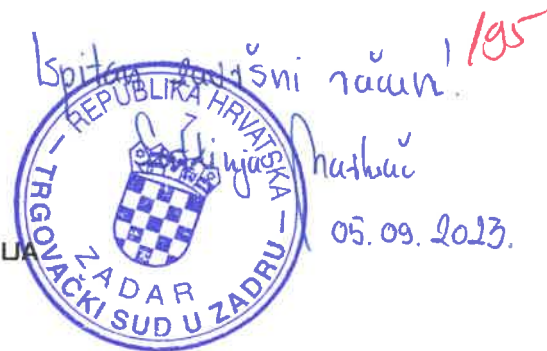 Ispitan završni račun!
/95
REPUBLIKA HRVATSKA
7
05.09.2023.
IJA
ZADAR
TRGOVAČKI SUD U ZADRU